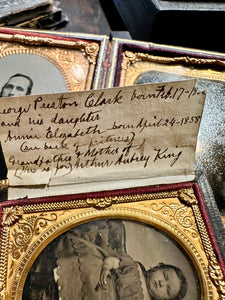 George Preston Clark born Feb 17-18
and his daughter
Annie Elizabeth born April 24-1858
(on back of picture)
Grandfather & Mother of
(Arthur Autrey King